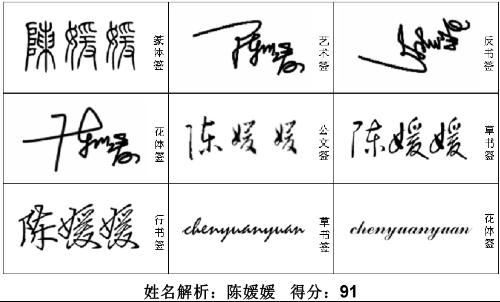 陳媛媛 篆体签
陈媛媛 艺术签
反书签
陈媛媛 花体签
陈媛媛 公文签
陈媛媛 草书签
陈媛媛 行书签
chenyuanyuan 草书签
chenyuanyuan 花体签
姓名解析：陈媛媛 得分：91